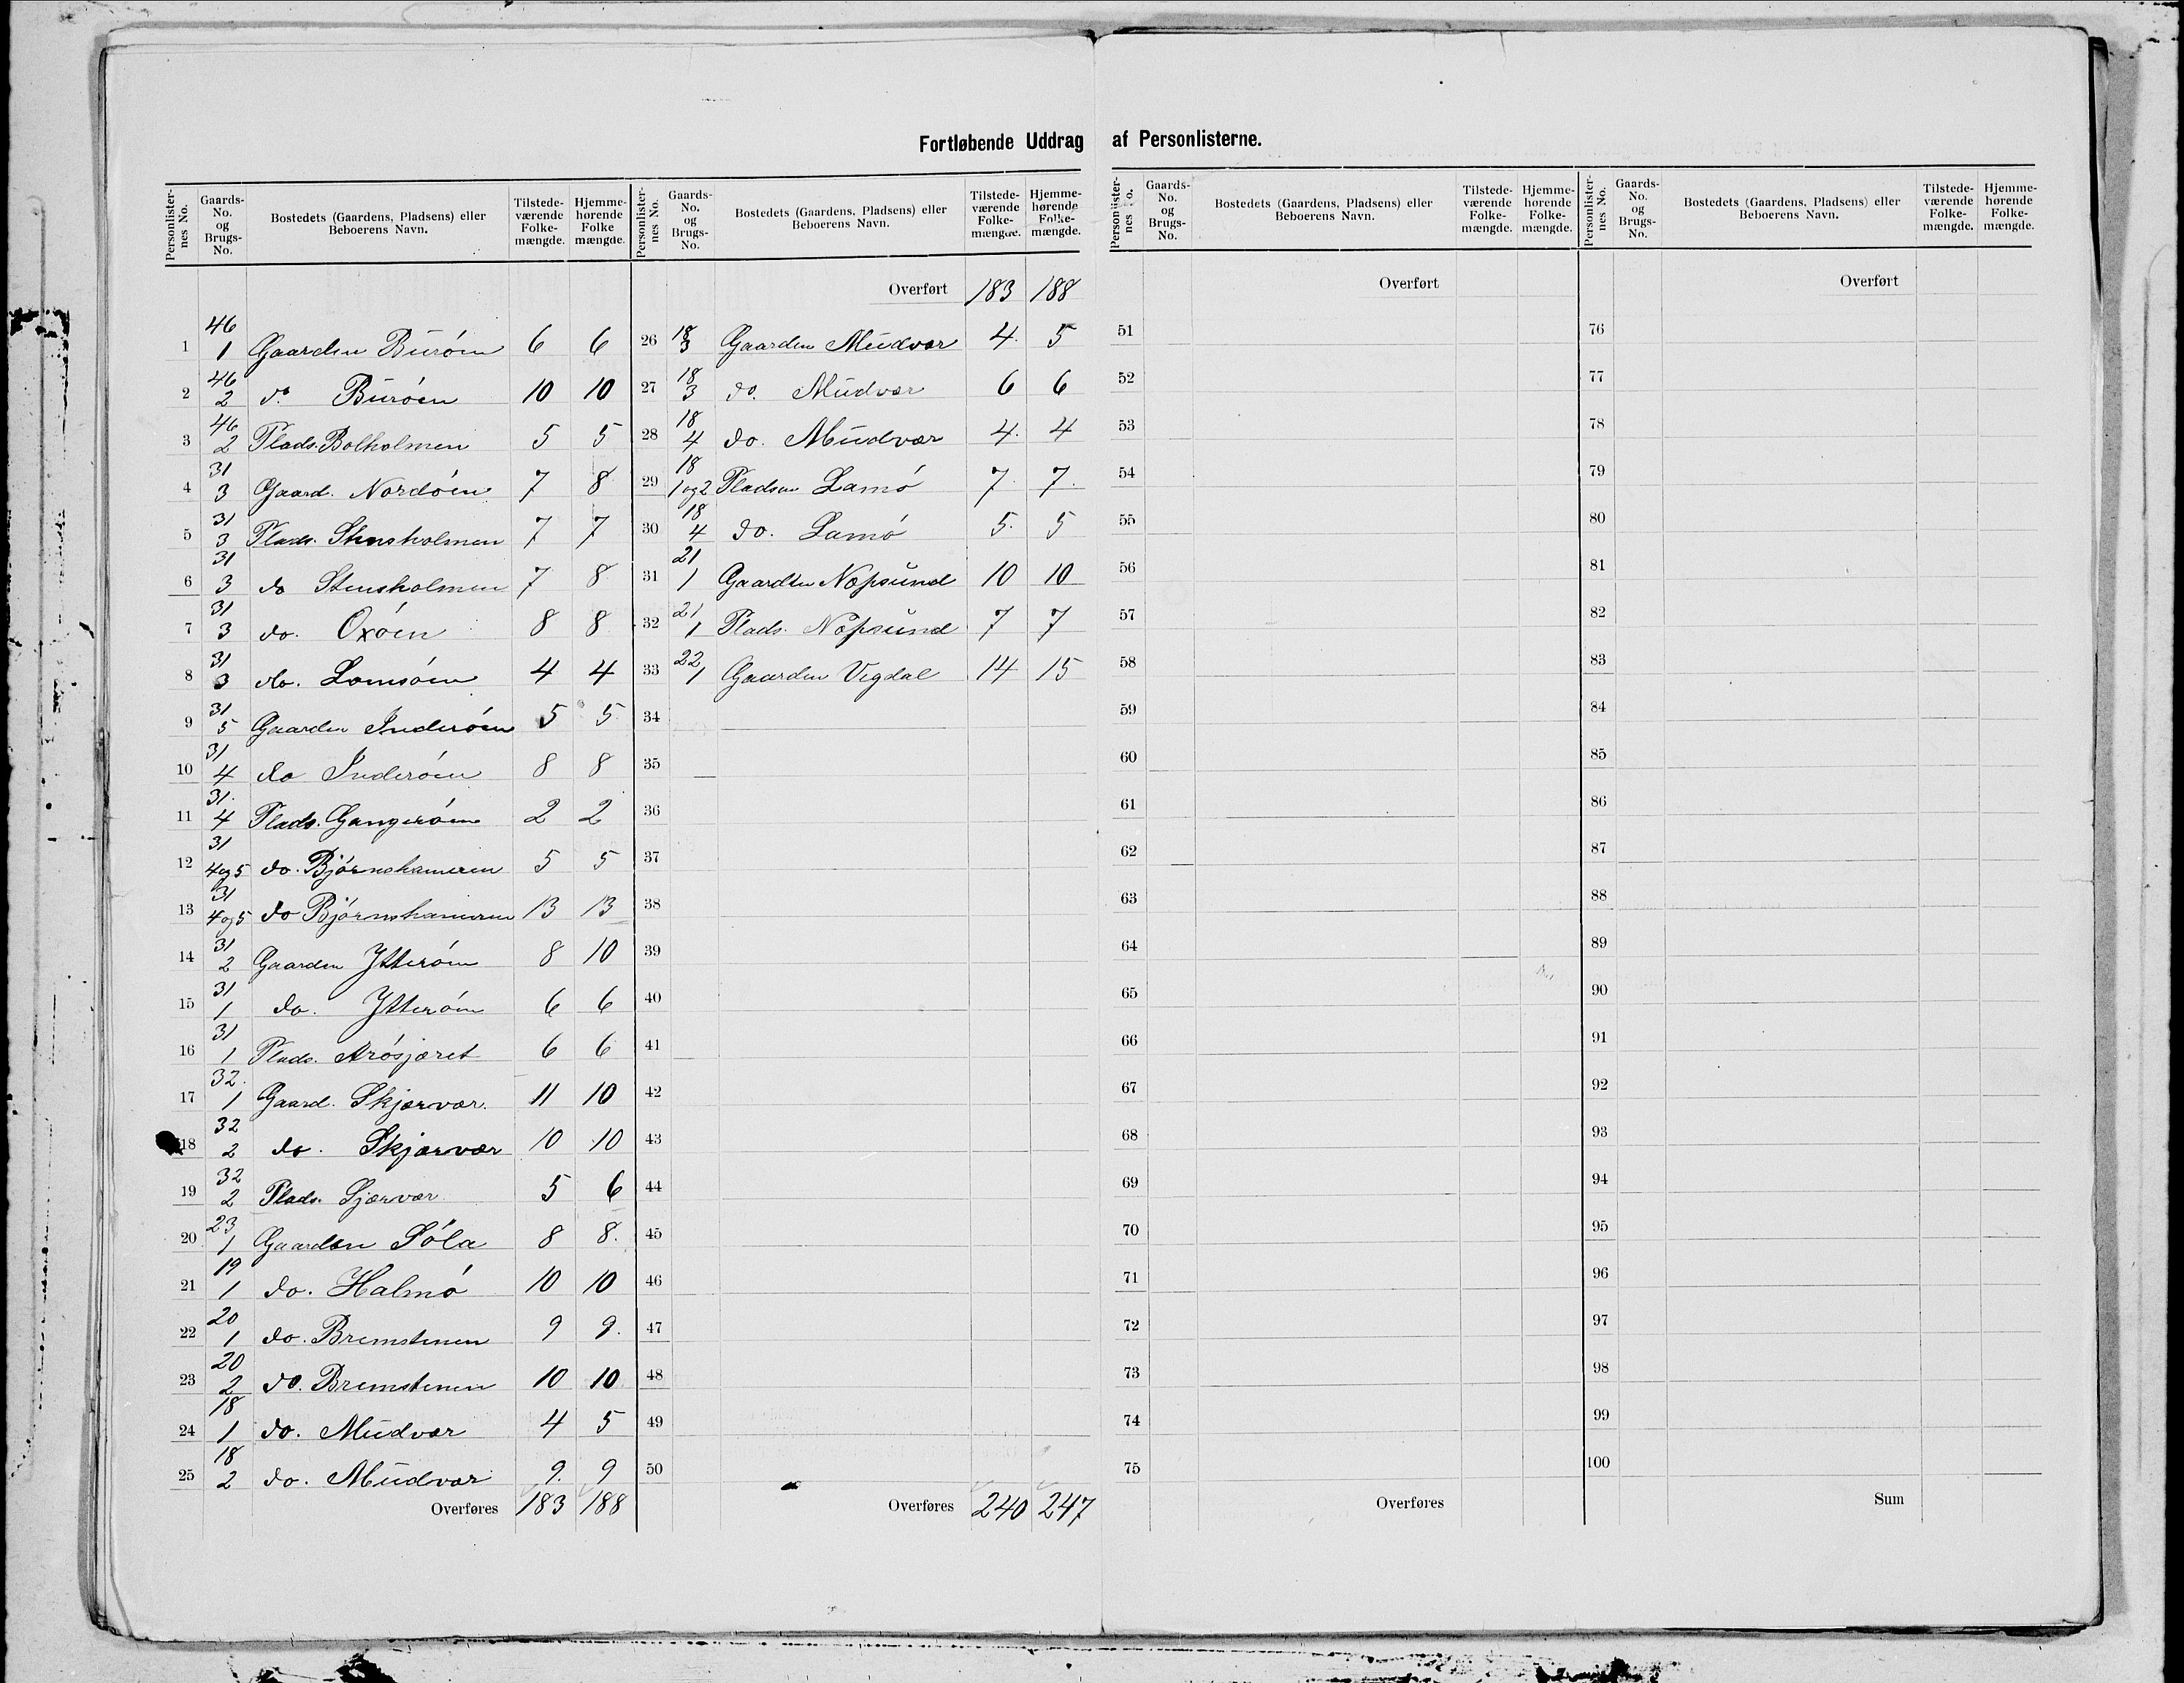 Fortløbende Uddrag af Personlisterne.
Personlister-nes No. | Gaards-No. og Brugs-No. | Bostedets (Gaardens, Pladsens) eller Beboerens Navn. | Tilstede-værende Folke-mængde. | Hjemme-hørende Folke mængde.
1 | 46 1 | Gaarden Burøen | 6 | 6
2 | 46 2 | do Burøen | 10 | 10
3 | 46 2 | Plads. Bolholmen | 5 | 5
4 | 31 3 | Gaard. Nordøen | 7 | 8
5 | 31 3 | Plads. Stensholmen | 7 | 7
6 | 31 3 | do Stensholmen | 7 | 8
7 | 31 3 | do. Oxøen | 8 | 8
8 | 31 3 | do. Lamsøen | 4 | 4
9 | 31 5 | Gaarden Inderøen | 5 | 5
10 | 31 4 | do Inderøen | 8 | 8
11 | 31. 4 | Plads. Gangerøen | 2 | 2
12 | 31 4og5 | do. Bjørnshameren | 5 | 5
13 | 31 4og5 | do Bjørnshameren | 13 | 13
14 | 31 2 | Gaarden Ytterøen | 8 | 10
15 | 31 1 | do. Ytterøen | 6 | 6
16 | 31 1 | Plads. | 6 | 6
17 | 32. 1 | Gaard. Skjærvær. | 11 | 10
18 | 32 2 | do. Skjærvær | 10 | 10
19 | 32 2 | Plads. Sjærvær | 5 | 6
20 | 23 1 | Gaarden Søla | 8 | 8.
21 | 19 1 | do. Halmø | 10 | 10
22 | 20 1 | do. Bremstenen | 9 | 9.
23 | 20 2 | do. Bremstenen | 10 | 10
24 | 18 1 | do. Mudvær | 4 | 5
25 | 18 2 | do. Mudvær | 9. | 9
Overføres | 183 | 188
Personlister-nes No. | Gaards-No. og Brugs-No. | Bostedets (Gaardens, Pladsens) eller Beboerens Navn. | Tilstede-værende Folke-mængde. | Hjemme-hørende Folke-mængde.
Overført | 183 | 188
26 | 18 3 | Gaarden Mudvær | 4. | 5
27 | 18 3 | do. Mudvær | 6 | 6
28 | 18 4 | do. Mudvær | 4. | 4
29 | 18 1og2 | Pladsen Lamø | 7 | 7.
30 | 18 4 | do. Lamø | 5. | 5
31 | 21 1 | Gaarden Næpsund | 10 | 10
32 | 21 1 | Plads. Næpsund | 7 | 7
33 | 22 1 | Gaarden Vegdal | 14 | 15
34
35
36
37
38
39
40
41
42
43
44
45
46
47
48
49
50
Overføres | 240 | 247
Personlister-nes No. | Gaards-No. og Brugs-No. | Bostedets (Gaardens, Pladsens) eller Beboerens Navn. | Tilstede-værende Folke-mængde. | Hjemme-hørende Folke-mængde.
Overført
51
52
53
54
55
56
57
58
59
60
61
62
63
64
65
66
67
68
69
70
71
72
73
74
75
Overføres
Personlister-nes No. | Gaards-No. og Brugs-No. | Bostedets (Gaardens, Pladsens) eller Beboerens Navn. | Tilstede-værende Folke-mængde. | Hjemme-hørende Folke-mængde.
Overført
76
77
78
79
80
81
82
83
84
85
86
87
88
89
90
91
92
93
94
95
96
97
98
99
100
Sum